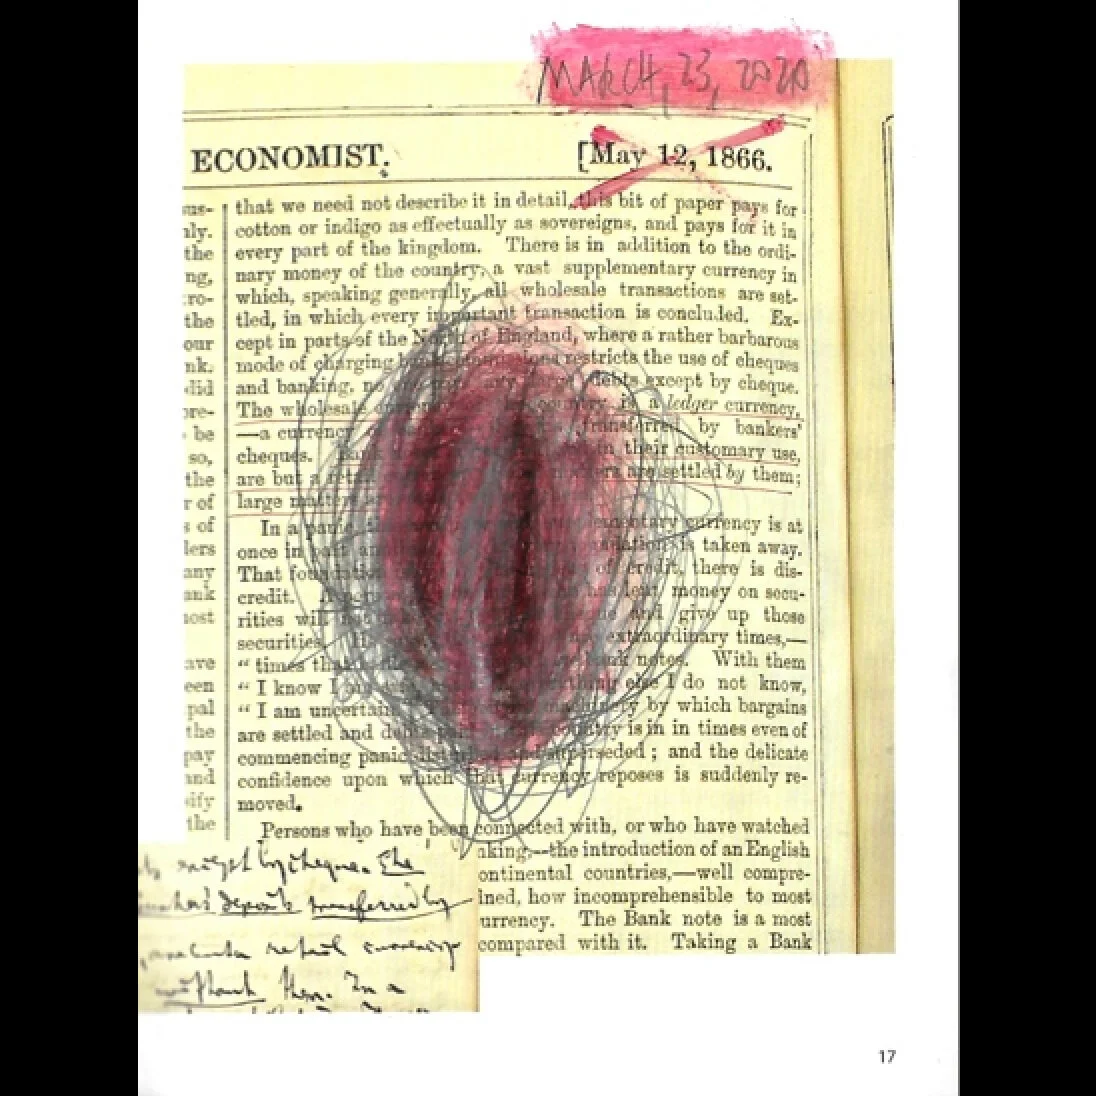 MARCH, 23, 2020
ECONOMIST.
[May 12, 1866.
us-
aly.
the
ng,
ro-
the
our
nk.
did
ore-
be
so,
the
r of
s of
lers
any
ank
nost
ave
een
pal
the
pay
and
sify
the
that we need not describe it in detail, this bit of paper pays for
cotton or indigo as effectually as sovereigns, and pays for it in
every part of the kingdom. There is in addition to the ordi-
nary money of the country, a vast supplementary currency in
which, speaking generally, all wholesale transactions are set-
tled, in which every important transaction is concluded. Ex-
cept in parts of the North of England, where a rather barbarous
mode of charging restricts the use of cheques
and banking, no debts except by cheque.
The wholesale country is a ledger currency,
—a currency transferred by bankers'
cheques. in their customary use,
are but a are settled by them;
large
In a panic, currency is at
once in part is taken away.
That foundation of credit, there is dis-
credit. has lent money on secu-
rities will and give up those
securities. extraordinary times,—
“ times that bank notes. With them
“ I know I else I do not know,
“ I am uncertain machinery by which bargains
are settled and debts country is in in times even of
commencing panic and superseded ; and the delicate
confidence upon which that currency reposes is suddenly re-
moved.
Persons who have been connected with, or who have watched
aking,—the introduction of an English
ontinental countries,—well compre-
ined, how incomprehensible to most
urrency. The Bank note is a most
compared with it. Taking a Bank
by cheque. The
deposits transferred by
retail currency
them. In a
17